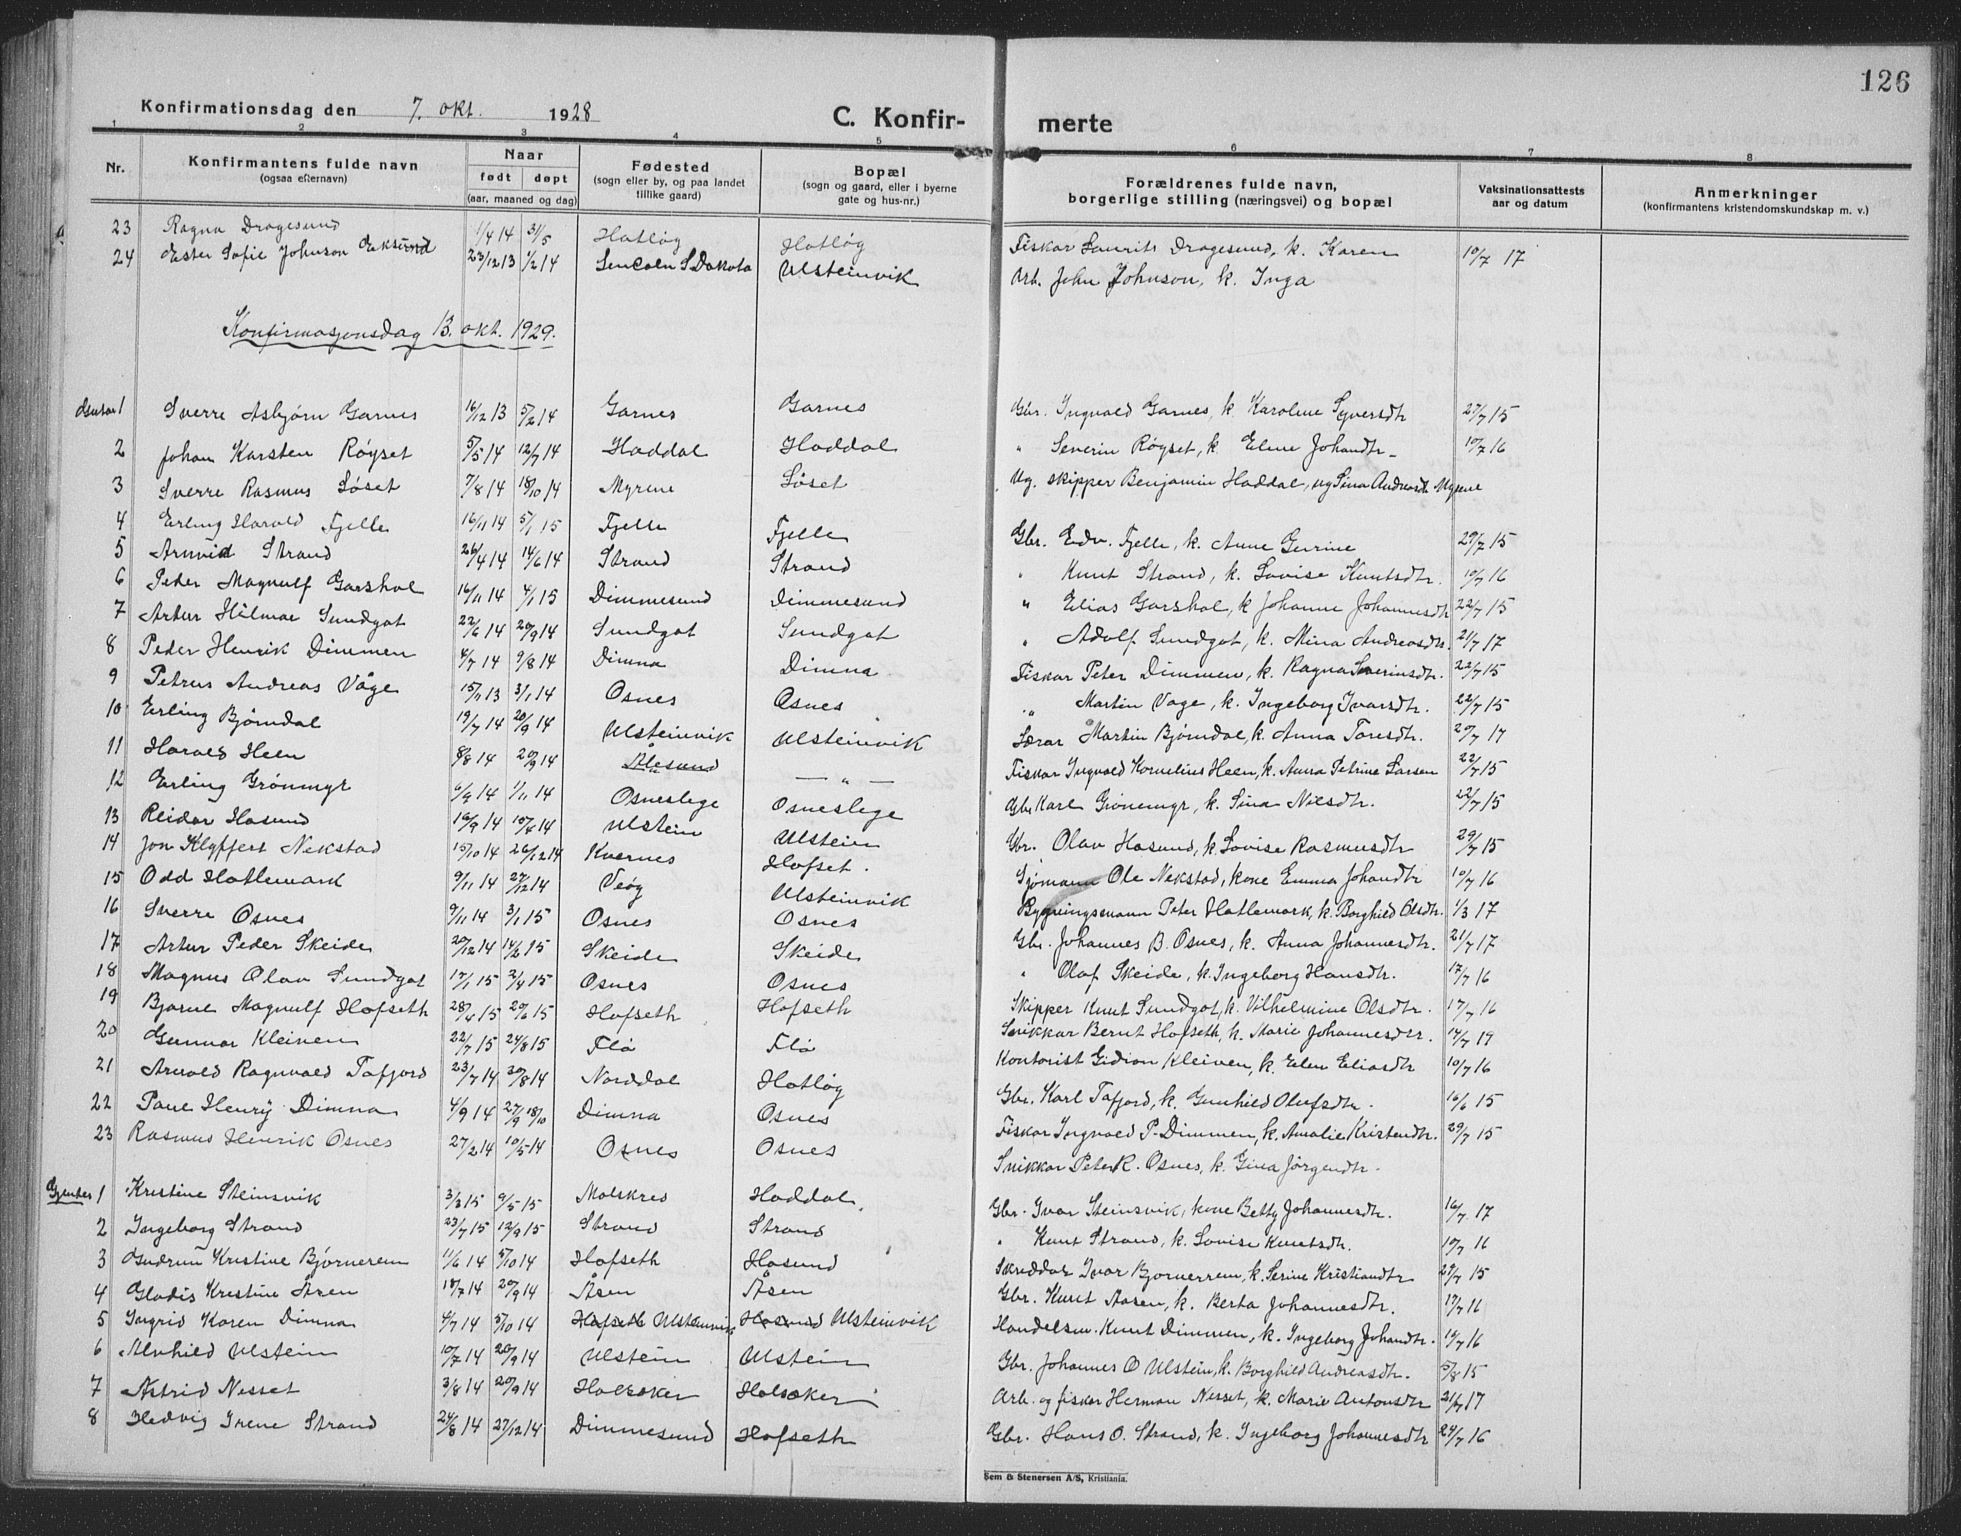 126
Konfirmationsdag den 7. okt. 1928 C. Konfir- merte
1 2 3 4 5 6 7 8
Nr. Konfirmantens fulde navn (ogsaa efternavn) Naar født døpt (aar, maaned og dag) Fødested (sogn eller by, og paa landet tillike gaard) Bopæl (sogn og gaard, eller i byerne gate og hus-nr.) Forældrenes fulde navn, borgerlige stilling (næringsvei) og bopæl Vaksinationsattests aar og datum Anmerkninger (konfirmantens kristendomskundskap m. v.)
23 Ragna Dragesund 1/4 14 31/5 Hatløy Hatløy Fiskar Laurits Dragesund, k. Karen 10/7 17
24 Ester Sofie Johnson Eiksund 23/12 13 1/2 14 S. Dakota Ulsteinvik Arb. John Johnson, k. Inga
Konfirmasjonsdag 13. okt. 1929.
1 Sverre Asbjørn Garnes 16/12 13 5/2 14 Garnes Garnes Gbr. Ingvald Garnes, k. Karoline Syversdtr 27/7 15
2 Johan Karsten Røyset 5/5 14 12/7 14 Haddal Haddal " Severin Røyset, k. Eline Johandtr 10/7 16
3 Sverre Rasmus Søset 7/8 14 18/10 14 Myrene Søset Ug. skipper Benjamin Haddal, ug Sina Andreasdtr Myrene
4 Erling Harald Fjelle 16/11 14 5/1 15 Fjelle Fjelle Gbr. Edv. Fjelle, k. Anne Gurine 29/7 15
5 Arnvid Strand 26/4 14 14/6 14 Strand Strand " Knut Strand, k. Lovise Knutsdtr. 10/7 16
6 Peder Magnulf Garshol 16/11 14 4/1 15 Dimmesund Dimmesund " Elias Garshol, k Johanne Johannesdtr 22/7 15
7 Artur Hilmar Sundgot 22/6 14 20/9 14 Sundgot Sundgot " Adolf Sundgot, k. Mina Andreasdtr. 21/7 17
8 Peder Henrik Dimmen 4/7 14 9/8 14 Dimna Dimna Fiskar Peter Dimmen, k. Ragna Severinsdtr. 22/7 15
9 Petrus Andreas Våge 15/11 13 3/1 14 Osnes Osnes " Martin Våge, k. Ingeborg Ivarsdtr. 22/7 15
10 Erling Bjørndal 19/7 14 20/9 14 Ulsteinvik Ulsteinvik Lærar Martin Bjørndal, k. Anna Toresdtr. 20/7 17
11 Harald Heen 8/8 14 20/9 14 Ålesund — " — Fiskar Ingvald Kornelius Heen, k. Anna Petrine Larsen 22/7 15
12 Erling Grønmyr 6/9 14 1/11 14 Osneslege Osneslege Gbr Karl Grønemyr, k. Sina Nilsdtr. 22/7 15
13 Reidar Hasund 16/9 14 Ulstein Ulstein Gbr. Olav Hasund, k. Lovise Rasmusdtr 29/7 15
14 Jon Klyffert Nekstad 15/10 14 26/12 14 Kvernes Hofset. Sjømann Ole Nekstad, kone Emma Johandtr 10/7 16
15 Odd Hatlemark 9/11 14 27/12 14 Veøy Ulsteinvik Bygningsmann Peter Hatlemark, k. Borghild Olsdtr. 1/3 17
16 Sverre Osnes 9/11 14 3/1 15 Osnes Osnes Gbr. Johannes B. Osnes, k. Anna Johannesdtr. 21/7 17
17 Artur Peder Skeide 20/12 14 14/2 15 Skeide Skeide " Olaf Skeide, k. Ingeborg Hansdtr. 17/7 16
18 Magnus Olav Sundgot 17/1 15 2/4 15 Osnes Osnes Skipper Knut Sundgot, k. Vilhelmine Olsdtr. 17/7 16
19 Bjarne Magnulf Hofseth 28/4 15 20/6 15 Hofseth Hofseth Snikkar Bernt Hofseth, k. Marie Johannesdtr. 14/7 19
20 Gunnar Kleiven 22/7 15 24/8 15 Flø Flø Kontorist Gidion Kleiven, k. Elen Eliasdtr 10/7 16
21 Arnold Ragnvald Tafjord 23/7 14 30/8 14 Norddal Hatløy Gbr. Karl Tafjord, k. Gunhild Olufsdtr. 16/6 15
22 Paul Henry Dimna 4/9 14 27/9 18/10 Dimna Osnes Fiskar Ingvald P. Dimmen, k. Amalie Kristendtr. 29/7 15
23 Rasmus Henrik Osnes 27/2 14 10/5 14 Osnes Osnes Snikkar Peter R. Osnes, k. Gina Jørgendtr.
Gjenter 1 Kristine Steinsvik 3/3 15 9/5 15 Molskred Haddal. Gbr. Ivar Steinsvik, kone Betty Johannesdtr. 16/7 17
2 Ingeborg Strand 23/7 15 12/9 15 Strand Strand " Knut Strand, k. Lovise Knutsdtr. 10/7 16
3 Gudrun Kristine Bjørnerem 11/6 14 5/10 14 Hofseth Hasund Skreddar Ivar Bjørnerem, k. Serine Kristiandtr 29/7 15
4 Gladis Kristine Åsen 18/7 14 20/9 14 Åsen Åsen Gbr. Knut Aasen, k. Berta Johannesdtr. 17/7 16
5 Ingrid Karen Dimna 4/7 14 5/10 14 Hofseth Ulsteinvik Hasund Ulsteinvik Handelsm. Knut Dimmen, k. Ingeborg Johandtr. 10/7 16
6 Alvhild Ulstein 10/7 14 20/9 14 Ulstein Ulstein Gbr. Johannes O Ulstein, k. Borghild Andreasdtr. 5/8 15
7 Astrid Nesset 3/8 14 20/9 14 Holsæker Holsæker Arb. og fiskar Herman Nesset, k. Marie Antonsdtr 21/7 17
8 Hedvig Irene Strand 24/8 14 27/12 14 Dimmesund Hofseth Gbr. Hans O. Strand, k. Ingeborg Johannesdtr 24/7 16
Sem & Stenersen A/S, Kristiania.